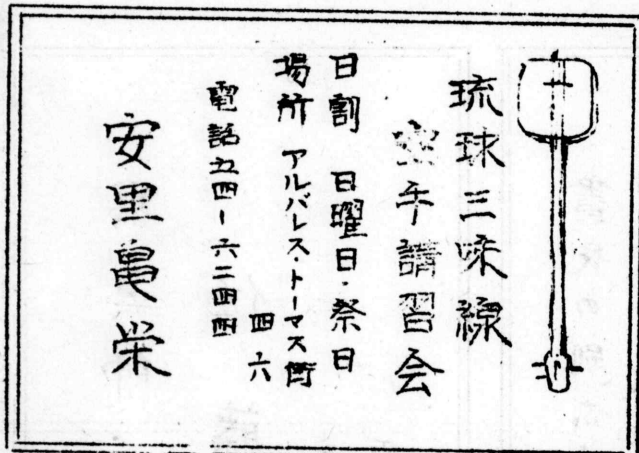 琉球三味線
空手講習会
日割 日曜日・祭日
場所 アルバレス・トーマス街
四六
電話五四ー六二四四
安里亀栄